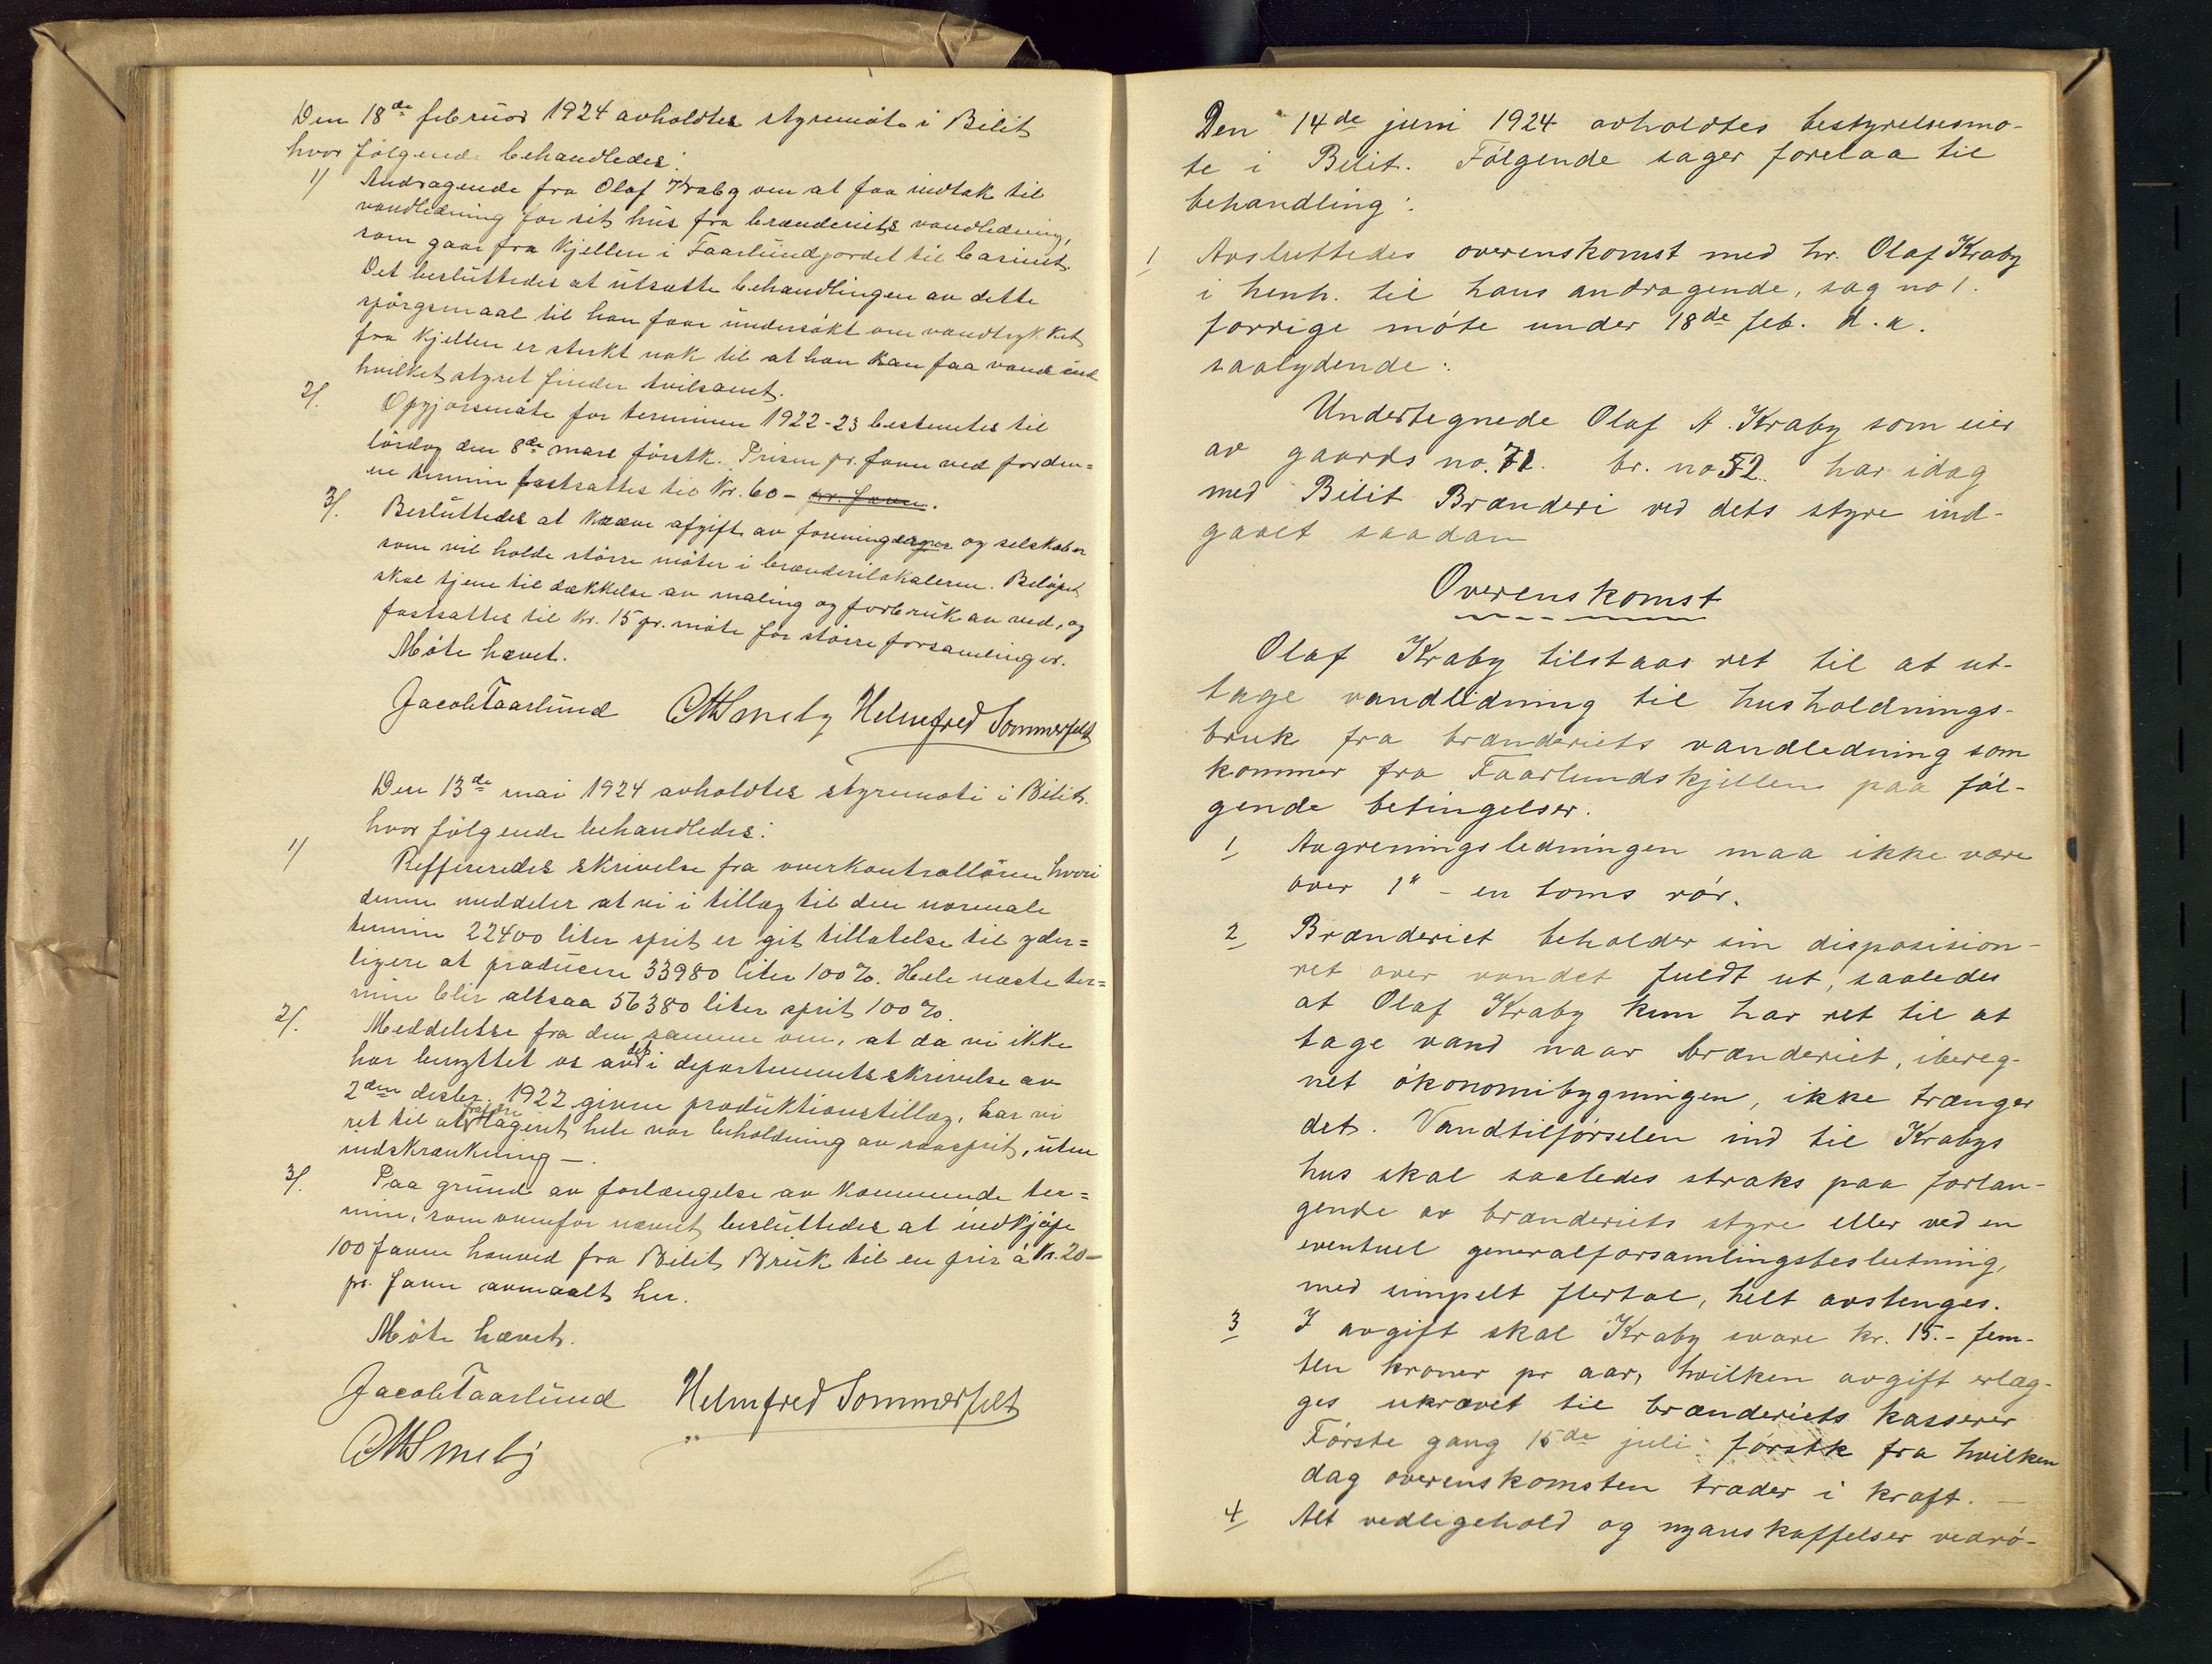 Den 18de februar 1924 avholdtes styremöte i Bilit
hvor fölgende behandledes:
1/ Andragende fra Olaf Kraby om at faa indtak til
vandledning for sit hus fra brænderiets vandledning,
som gaar fra kjellen i Faarlundjordet til basinet.
Det besluttedes at utsætte behandlingen av dette
spörgsmaal til han faar undersökt om vandtrykket
fra kjellen er sterkt nok til at han kan faa vand ind
hvilket styret finder tvilsomt.
2/. Opgjörsmöte for terminen 1922-23 bestemtes til
lördag den 8de mars förstk. Prisen pr. favn ved forden-
ne termin fastsattes til Kr. 60 - pr. favn.
3/. Besluttedes at kræve afgift av foreninger og selskaber
som vil holde större möter i brænderilokalerne. Belöpet
skal tjene til dækkelse av maling og forbruk av ved, og
fastsattes til kr. 15 pr. möte for större forsamlinger.
Möte hævet.
Jacob Faarlund OMSmeby Helmfred Sommerfelt
Den 13de mai 1924 avholdtes styremöte i Bilit.
hvor fölgende behandledes:
1/ Reffereredes skrivelse fra overkontrollören hvori
denne meddeler at vi i tillæg til den normale
termin 22400 liter sprit er git tillatelse til yder-
ligere at producere 33980 liter 100%. Hele næste ter-
min blir altsaa 56380 liter sprit 100%.
2/. Meddelelse fra den samme om, at da vi ikke
har benyttet os av det i departementsskrivelse av
2den desbr. 1922 givne produktionstillæg, har vi
ret til at fraføre lageret hele vor beholdning av raasprit, uten
indskrænkning -.
3/. Paa grund av forlængelse av kommende ter-
min, som ovenfor nævnt, besluttedes at indkjöpe
100 favne honved fra Bilit Bruk til en pris à Kr. 20-
pr. favn avmaalt her.
Möte hævet.
Jacob Faarlund Helmfred Sommerfelt
OMSmeby
Den 14de juni 1924 avholdtes bestyrelsesmö-
te i Bilit. Følgende sager forelaa til
behandling:
1 Avsluttedes overenskomst med hr. Olaf Kraby
i henh. til hans andragende, sag no 1.
forrige möte under 18de feb. d.a.
saalydende:
Undertegnede Olaf A. Kraby som eier
av gaards no. 71. br. no 52. har idag
med Bilit Brænderi ved dets styre ind-
gaaet saadan
Overenskomst
Olaf Kraby tilstaaes ret til at ut-
tage vandledning til husholdnings-
bruk fra brænderiets vandledning som
kommer fra Faarlundskjellen paa föl-
gende betingelser.
1 Avgreningsledningen maa ikke være
over 1" - en toms rör.
2 Brænderiet beholder sin disposision-
ret over vandet fuldt ut, saaledes
at Olaf Kraby kun har ret til at
tage vand naar brænderiet, ibereg-
net ökonomibygningen, ikke trænger
det. Vandtilförselen ind til Krabys
hus skal saaledes straks paa forlan-
gende av brænderiets styre eller ved en
eventuel generalforsamlingsbeslutning,
med simpelt flertal, helt avstenges.
3 I avgift skal Kraby svare kr. 15.- fem-
ten kroner pr aar, hvilken avgift erlæg-
ges ukrævet til brænderiets kasserer
Förste gang 15de juli förstk fra hvilken
dag overenskomsten træder i kraft. -
4 Alt vedligehold og nyanskaffelser vedrö-